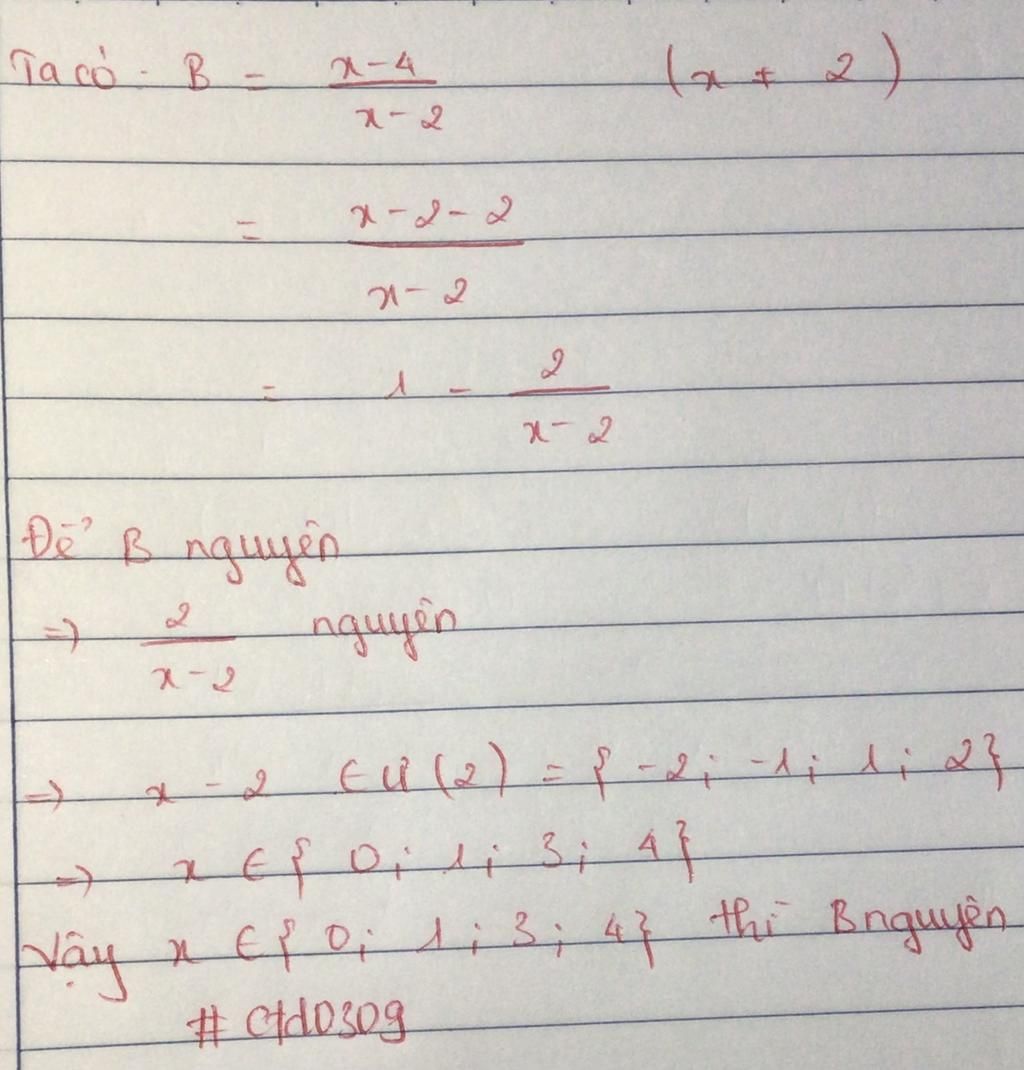 Ta có: B = \frac{x-4}{x-2} (x ≠ 2)
= \frac{x-2-2}{x-2}
= 1 - \frac{2}{x-2}
Để B nguyên
=> \frac{2}{x-2} nguyên
=> x - 2 ∈ Ư(2) = { -2; -1; 1; 2}
=> x ∈ { 0; 1; 3; 4}
Vậy x ∈ { 0; 1; 3; 4} thì B nguyên